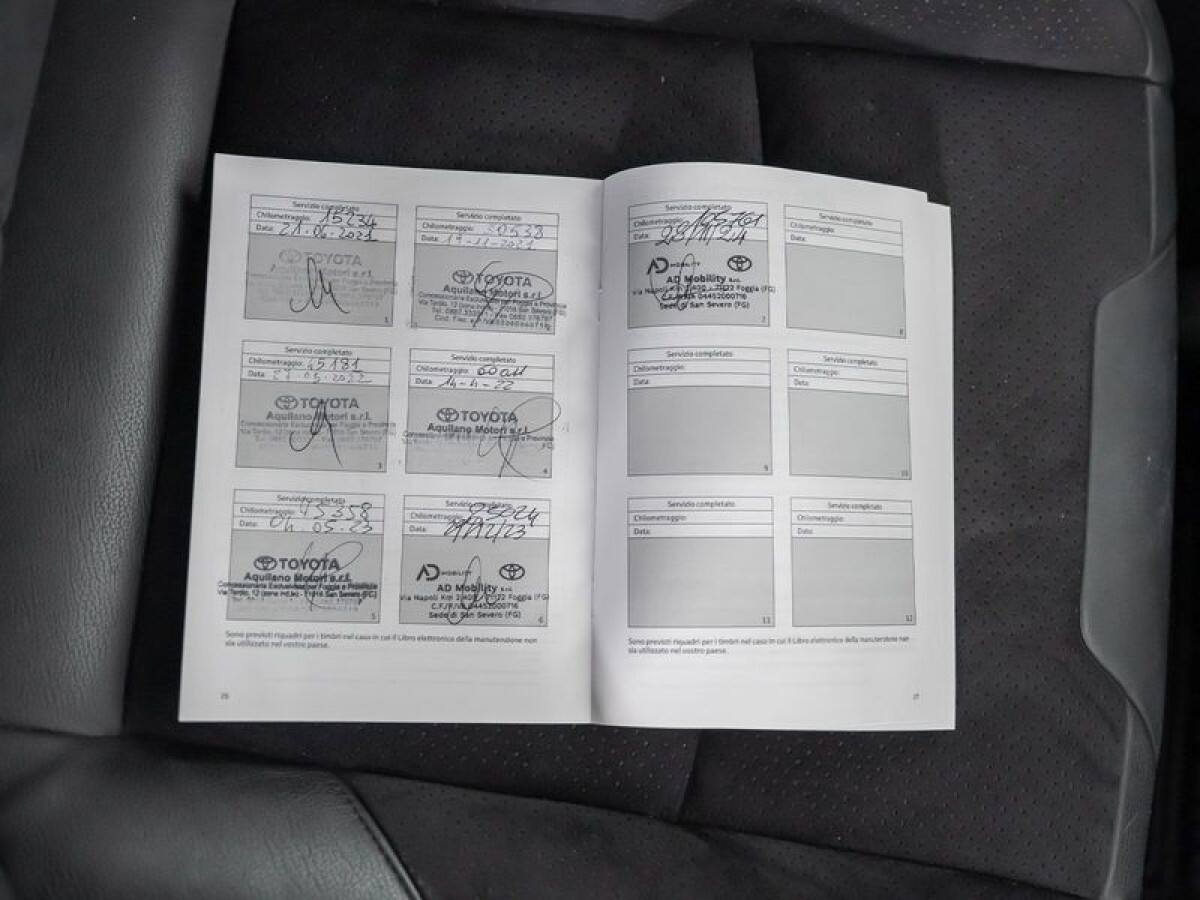 Servizio completato
Chilometraggio: 15234
Data: 21.06.2021
TOYOTA
Aquilano Motori s.r.l.
1
Servizio completato
Chilometraggio:
Data: 19-11-2021
TOYOTA
Aquilano Motori s.r.l.
Concessionaria Esclusiva per Foggia e Provincia
Servizio completato
Chilometraggio: 45181
Data:
TOYOTA
Aquilano Motori s.r.l.
3
Servizio completato
Chilometraggio:
Data: 14-4-22
TOYOTA
Aquilano Motori s.r.l.
4
Servizio completato
Chilometraggio: 75358
Data: 04.05.23
TOYOTA
Aquilano Motori s.r.l.
Concessionaria Esclusiva per Foggia e Provincia
5
Servizio completato
Chilometraggio:
Data:
AD MOBILITY
AD Mobility s.r.l.
Via Napoli Km 2,400 - 71122 Foggia (FG)
C.F./P.IVA 04452000716
Sede di San Severo (FG)
6
Sono previsti riquadri per i timbri nel caso in cui il Libro elettronico della manutenzione non
sia utilizzato nel vostro paese.
26
Servizio completato
Chilometraggio: 105761
Data: 28/11/24
AD MOBILITY
AD Mobility s.r.l.
Via Napoli Km 2,400 - 71122 Foggia (FG)
C.F./P.IVA 04452000716
Sede di San Severo (FG)
7
Servizio completato
Chilometraggio:
Data:
8
Servizio completato
Chilometraggio:
Data:
9
Servizio completato
Chilometraggio:
Data:
10
Servizio completato
Chilometraggio:
Data:
11
Servizio completato
Chilometraggio:
Data:
12
Sono previsti riquadri per i timbri nel caso in cui il Libro elettronico della manutenzione non
sia utilizzato nel vostro paese.
27